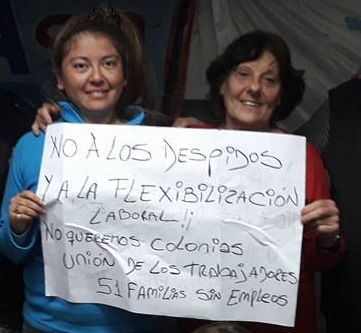 NO A LOS DESPIDOS
Y A LA FLEXIBILIZACIÓN
LABORAL!!
NO QUEREMOS COLONIAS
UNIÓN DE LOS TRABAJADORES
51 FAMILIAS SIN EMPLEOS